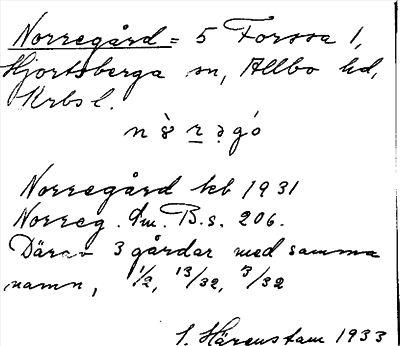 Norregård = 5 Forssa 1,
Hjortsberga sn, Allbo hd,
Krbs l.
Norregård kb 1931
Norreg. Am. B.s. 206.
Därav 3 gårdar med samma
namn, 1/2, 13/32, 3/32
S. Härenstam 1933